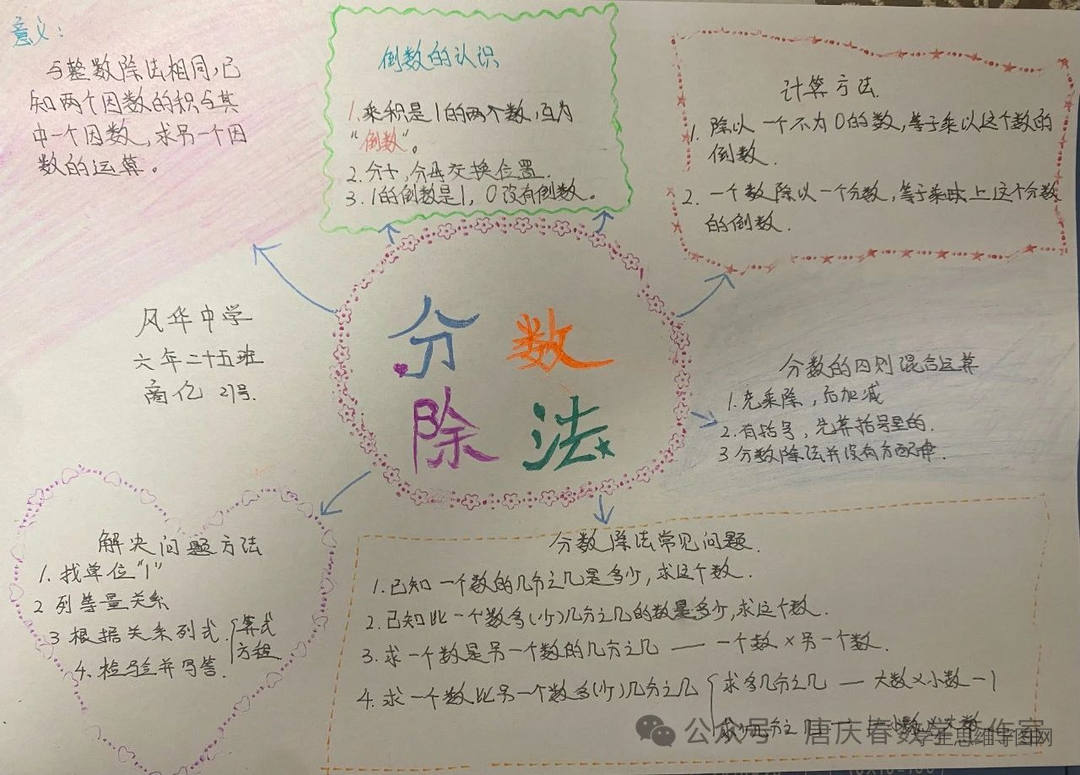 意义：
与整数除法相同，已
知两个因数的积与其
中一个因数，求另一个因
数的运算。
倒数的认识
1.乘积是1的两个数，互为
"倒数"。
2.分子，分母交换位置.
3.1的倒数是1，0没有倒数。
计算方法
1.除以一个不为0的数，等于乘以这个数的
倒数.
2.一个数除以一个分数，等于乘上这个分数
的倒数.
风华中学
六年二十五班
商亿 21号.
分数
除法
分数的四则混合运算
1.先乘除，后加减
2.有括号，先算括号里的.
3分数除法并没有分配律.
解决问题方法
1.找单位"1"
2列等量关系
3根据关系列式.{算式
方程
4.检验并写答.
分数除法常见问题.
1.已知一个数的几分之几是多少，求这个数.
2.已知比一个数多(少)几分之几的数是多少，求这个数.
3.求一个数是另一个数的几分之几 — 一个数×另一个数.
4.求一个数比另一个数多(少)几分之几{求多几分之几 — 大数×小数-1
求少几分之几
公众号 唐庆春数学工作室
学生思维导图网